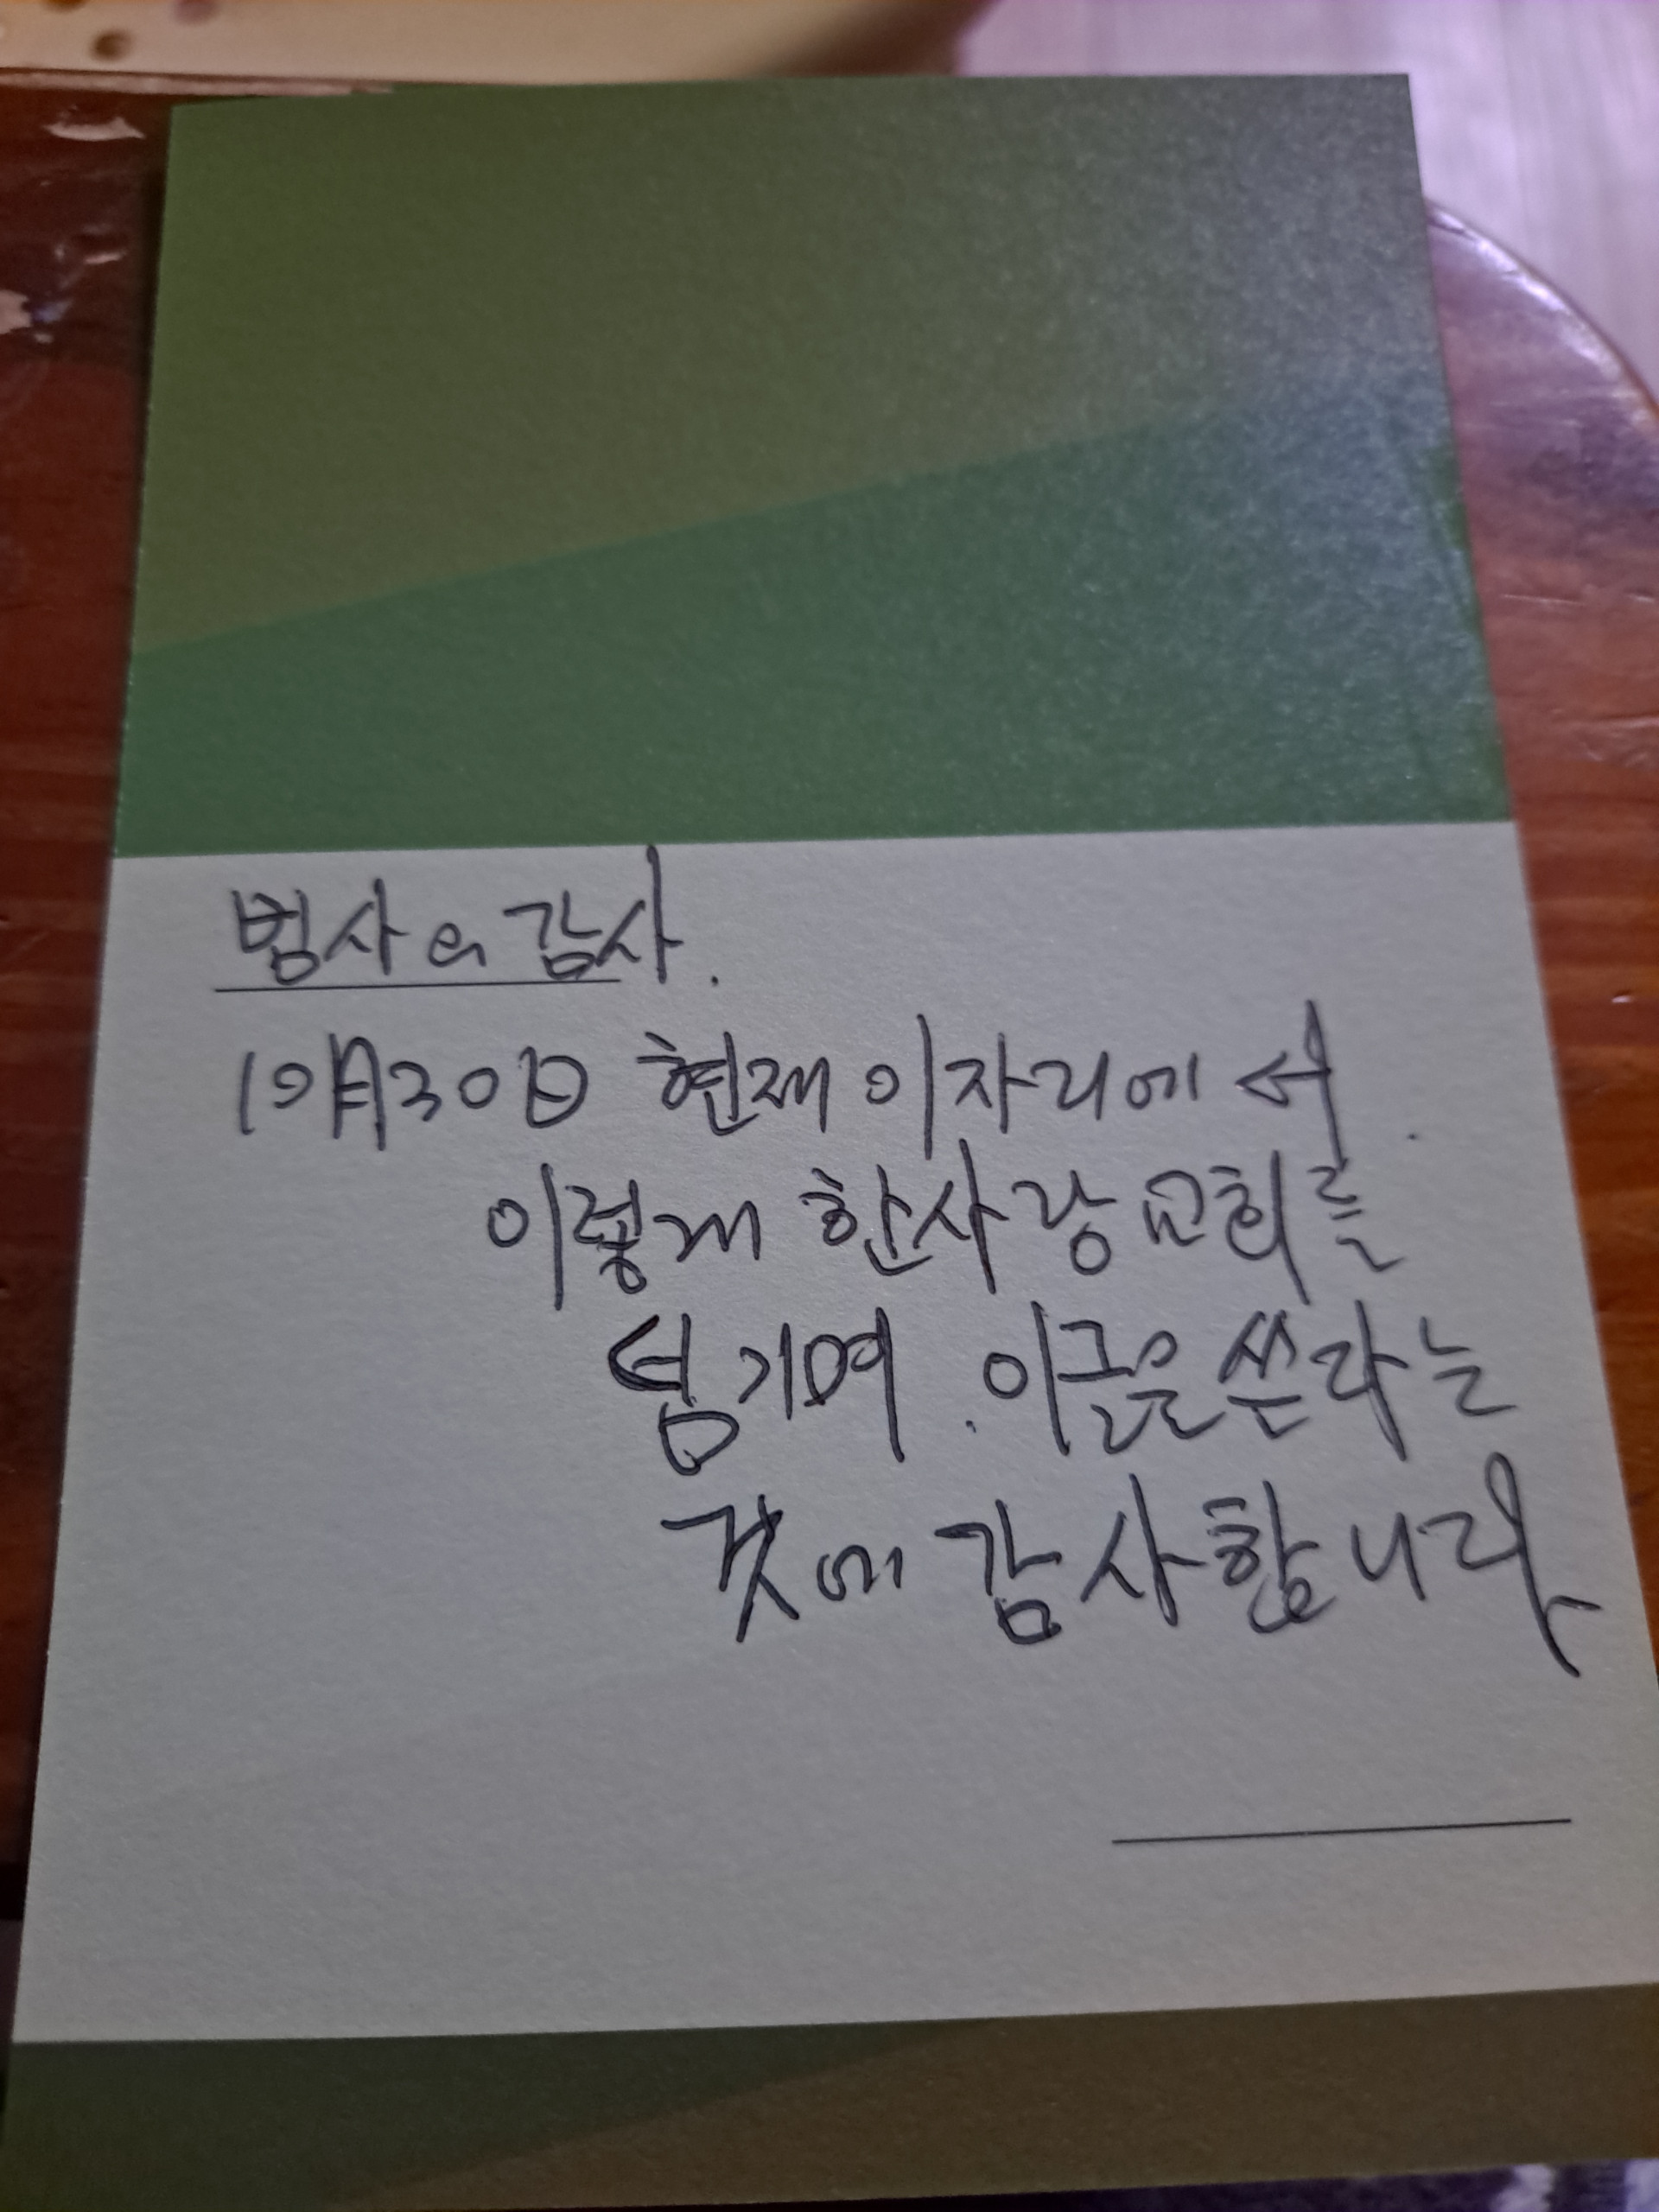 범사에 감사.
10月30日 현재 이자리에서
이렇게 한사랑교회를
섬기며. 이글을 쓰라는
것에 감사합니다